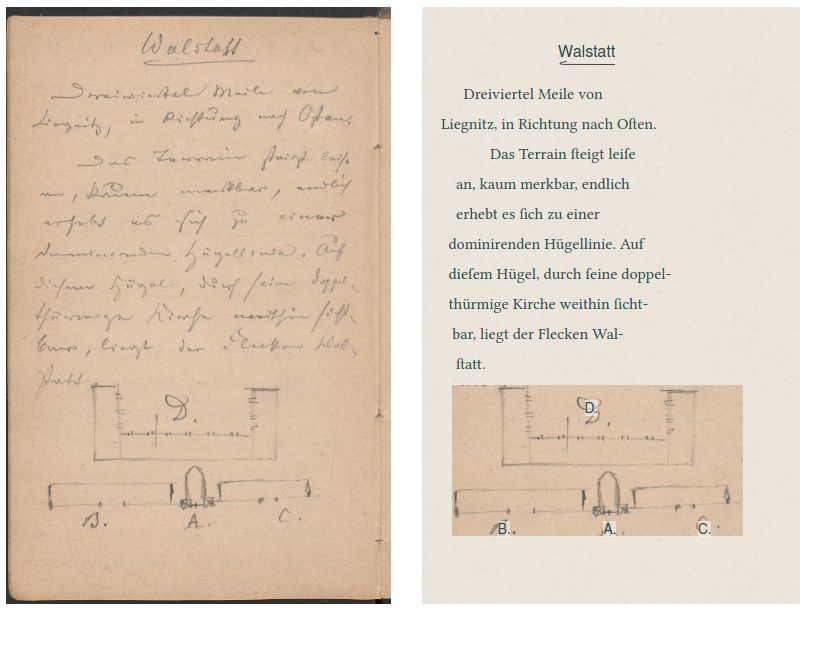 Walstatt
Dreiviertel Meile von
Liegnitz, in Richtung nach Osten.
Das Terrain steigt leise
an, kaum merkbar, endlich
erhebt es sich zu einer
dominirenden Hügellinie. Auf
diesem Hügel, durch seine doppel-
thürmige Kirche weithin sicht-
bar, liegt der Flecken Wal-
statt.
D.
B. A. C.
Walstatt
Dreiviertel Meile von
Liegnitz, in Richtung nach Oſten.
Das Terrain ſteigt leiſe
an, kaum merkbar, endlich
erhebt es ſich zu einer
dominirenden Hügellinie. Auf
dieſem Hügel, durch ſeine doppel-
thürmige Kirche weithin ſicht-
bar, liegt der Flecken Wal-
ſtatt.
D.
B. A. C.